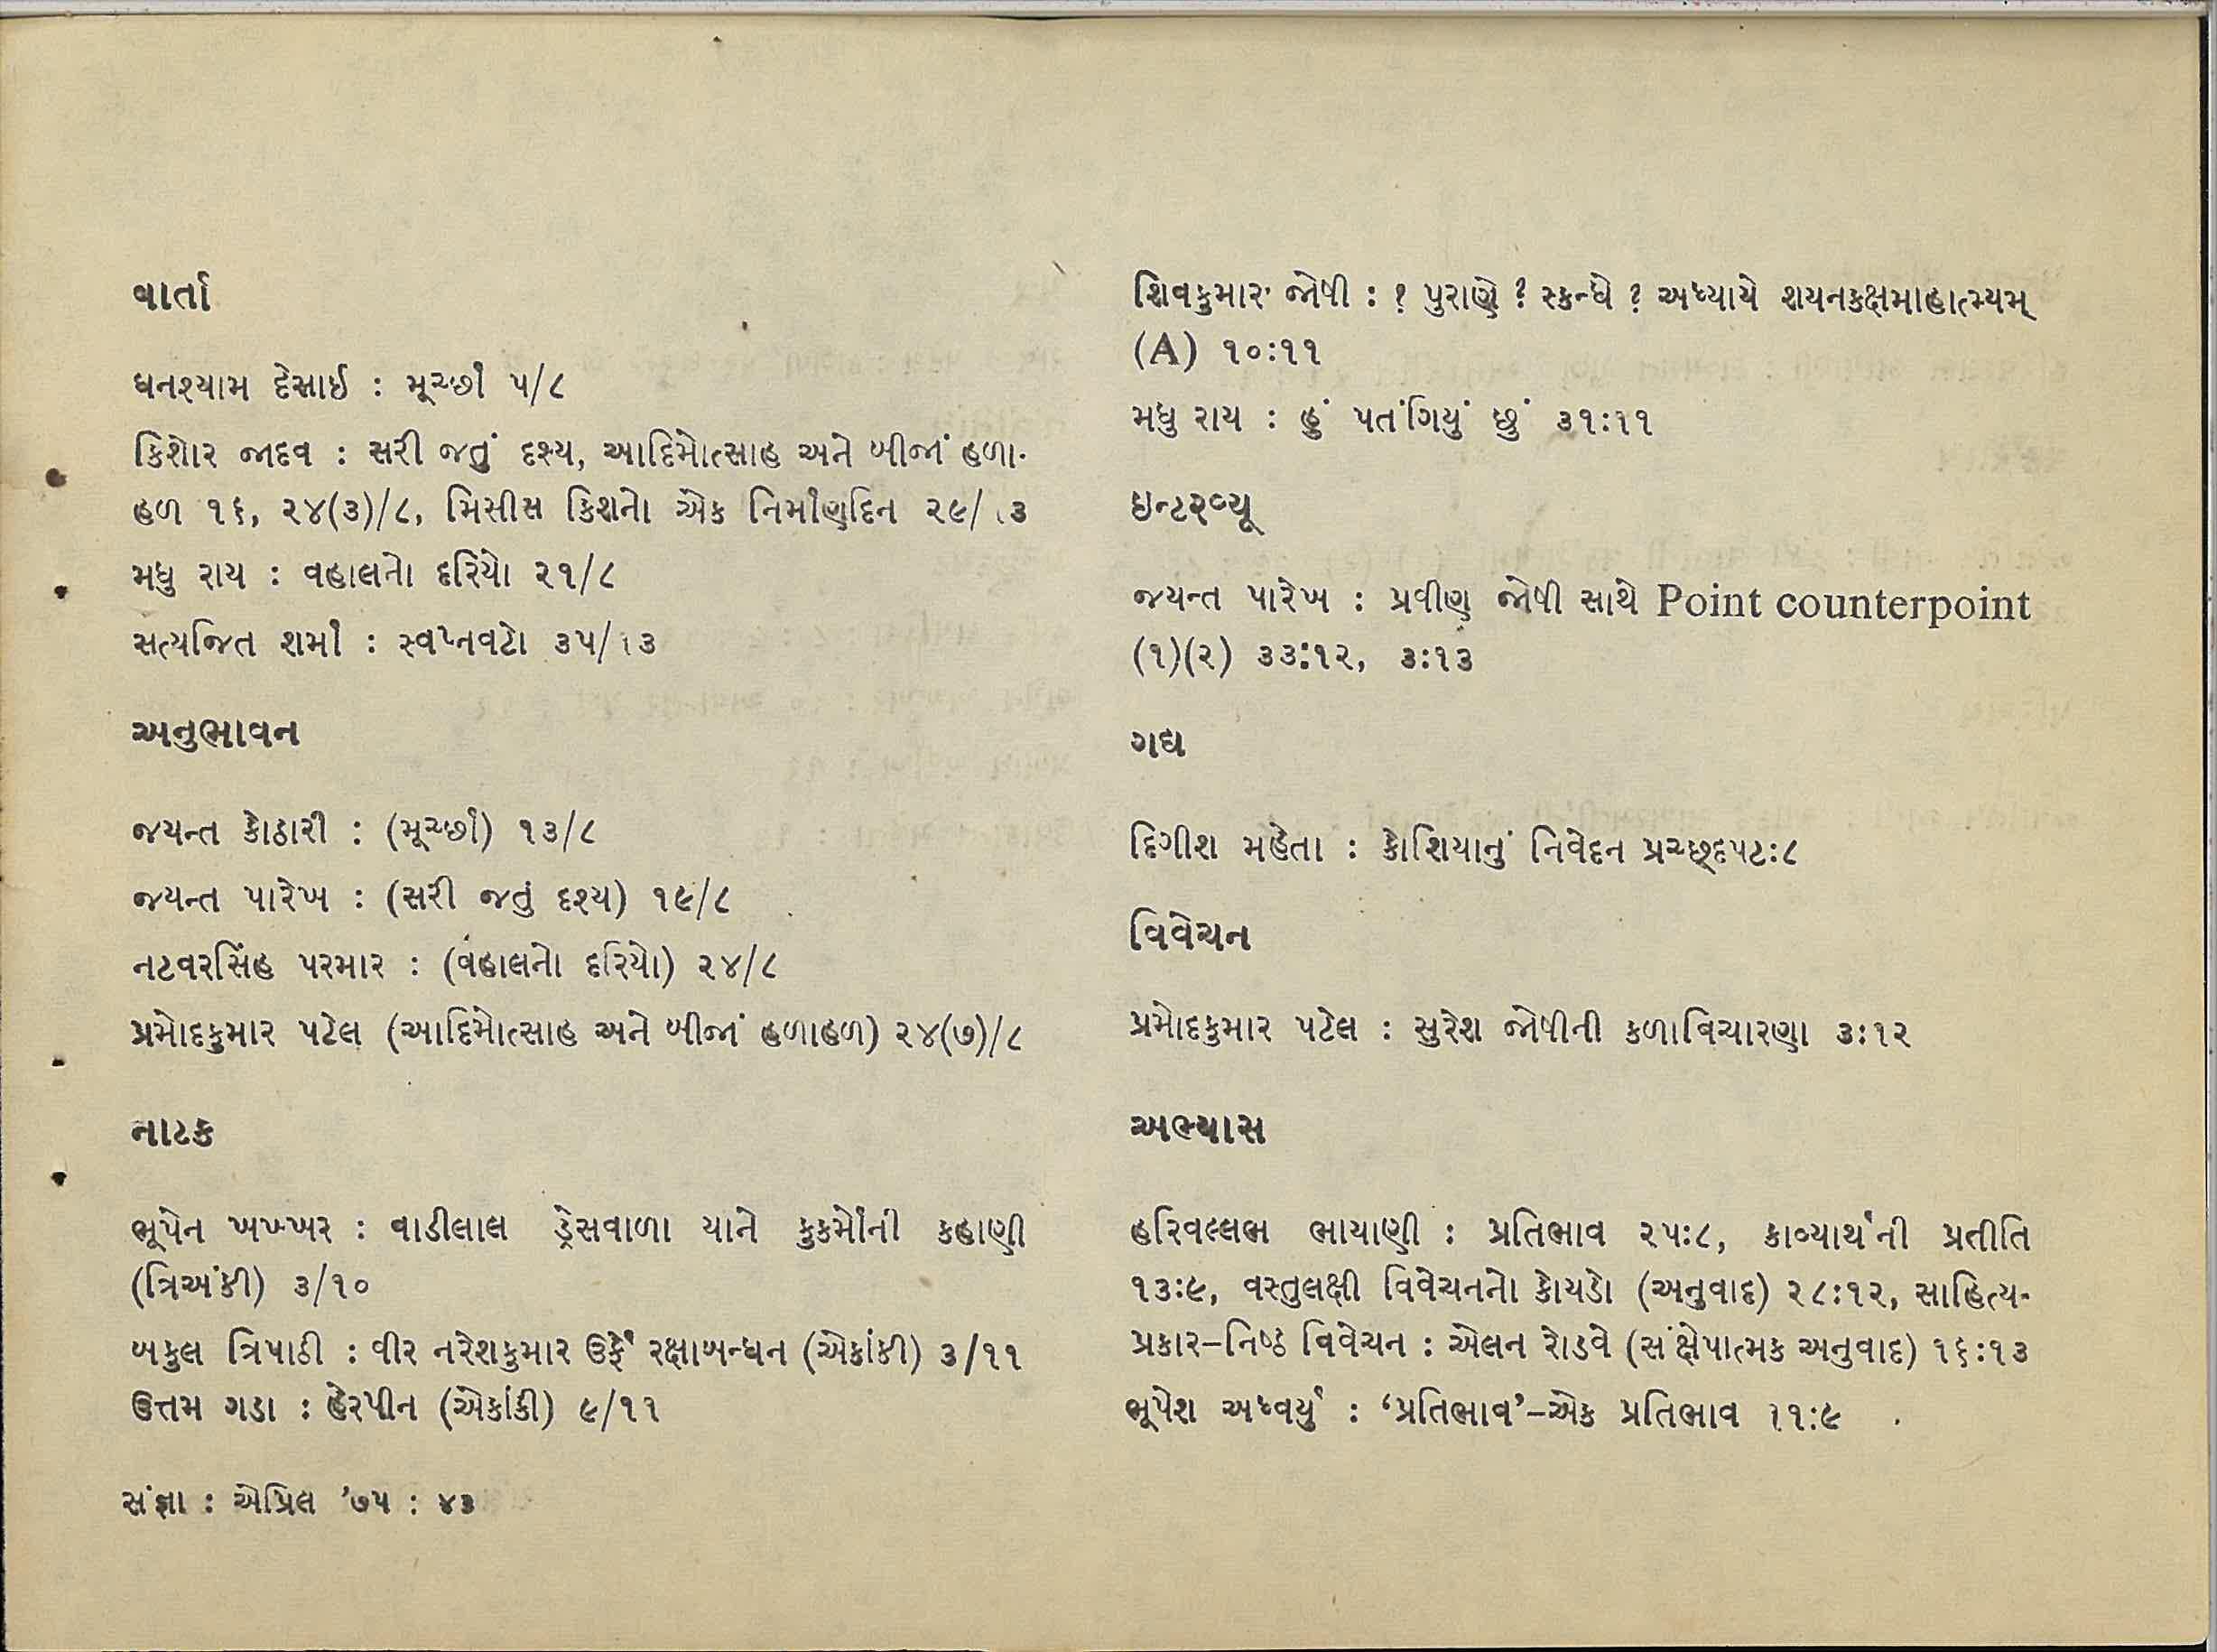 વાર્તા
ધનશ્યામ દેસાઈ : મૂર્ચ્છા ૫/૮
કિશોર જાદવ : સરી જતું દૃશ્ય, આદિમોત્સાહ અને બીજાં હળા-
હળ ૧૬, ૨૪(૩)/૮, મિસીસ કિશનો એક નિર્માણદિન ૨૯/૧૩
મધુ રાય : વહાલનો દરિયો ૨૧/૮
સત્યજિત શર્મા : સ્વપ્નવટો ૩૫/૧૩
અનુભાવન
જયન્ત કોઠારી : (મૂર્ચ્છા) ૧૩/૮
જયન્ત પારેખ : (સરી જતું દૃશ્ય) ૧૯/૮
નટવરસિંહ પરમાર : (વહાલનો દરિયો) ૨૪/૮
પ્રમોદકુમાર પટેલ (આદિમોત્સાહ અને બીજાં હળાહળ) ૨૪(૭)/૮
નાટક
ભૂપેન ખખ્ખર : વાડીલાલ ડ્રેસવાળા યાને કુકર્મોની કહાણી
(ત્રિઅંકી) ૩/૧૦
બકુલ ત્રિપાઠી : વીર નરેશકુમાર ઉર્ફે રક્ષાબન્ધન (એકાંકી) ૩/૧૧
ઉત્તમ ગડા : હેરપીન (એકાંકી) ૯/૧૧
સંજ્ઞા : એપ્રિલ '૭૫ : ૪૩
શિવકુમાર જોષી : ? પુરાણે ? સ્કન્ધે ? અધ્યાયે શયનકક્ષમાહાત્મ્યમ્
(A) ૧૦:૧૧
મધુ રાય : હું પતંગિયું છું ૩૧:૧૧
ઇન્ટરવ્યૂ
જયન્ત પારેખ : પ્રવીણ જોષી સાથે Point counterpoint
(૧)(૨) ૩૩:૧૨, ૩:૧૩
ગદ્ય
દિગીશ મહેતા : કોશિયાનું નિવેદન પ્રચ્છદપટ:૮
વિવેચન
પ્રમોદકુમાર પટેલ : સુરેશ જોષીની કળાવિચારણા ૩:૧૨
અભ્યાસ
હરિવલ્લભ ભાયાણી : પ્રતિભાવ ૨૫:૮, કાવ્યાર્થની પ્રતીતિ
૧૩:૯, વસ્તુલક્ષી વિવેચનનો કોયડો (અનુવાદ) ૨૮:૧૨, સાહિત્ય-
પ્રકાર–નિષ્ઠ વિવેચન : એલન રોડવે (સંક્ષેપાત્મક અનુવાદ) ૧૬:૧૩
ભૂપેશ અધ્વર્યુ : ‘પ્રતિભાવ’–એક પ્રતિભાવ ૧૧:૯